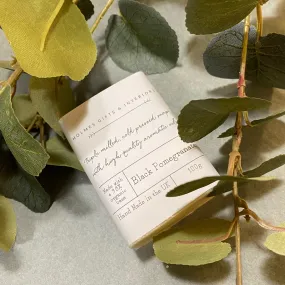 HOLMES GIFTS & INTERIORS
Triple milled, cold pressed soap
with high quality aromatic oils
Made with
organic
Black Pomegranate
Hand Made in the UK
150g